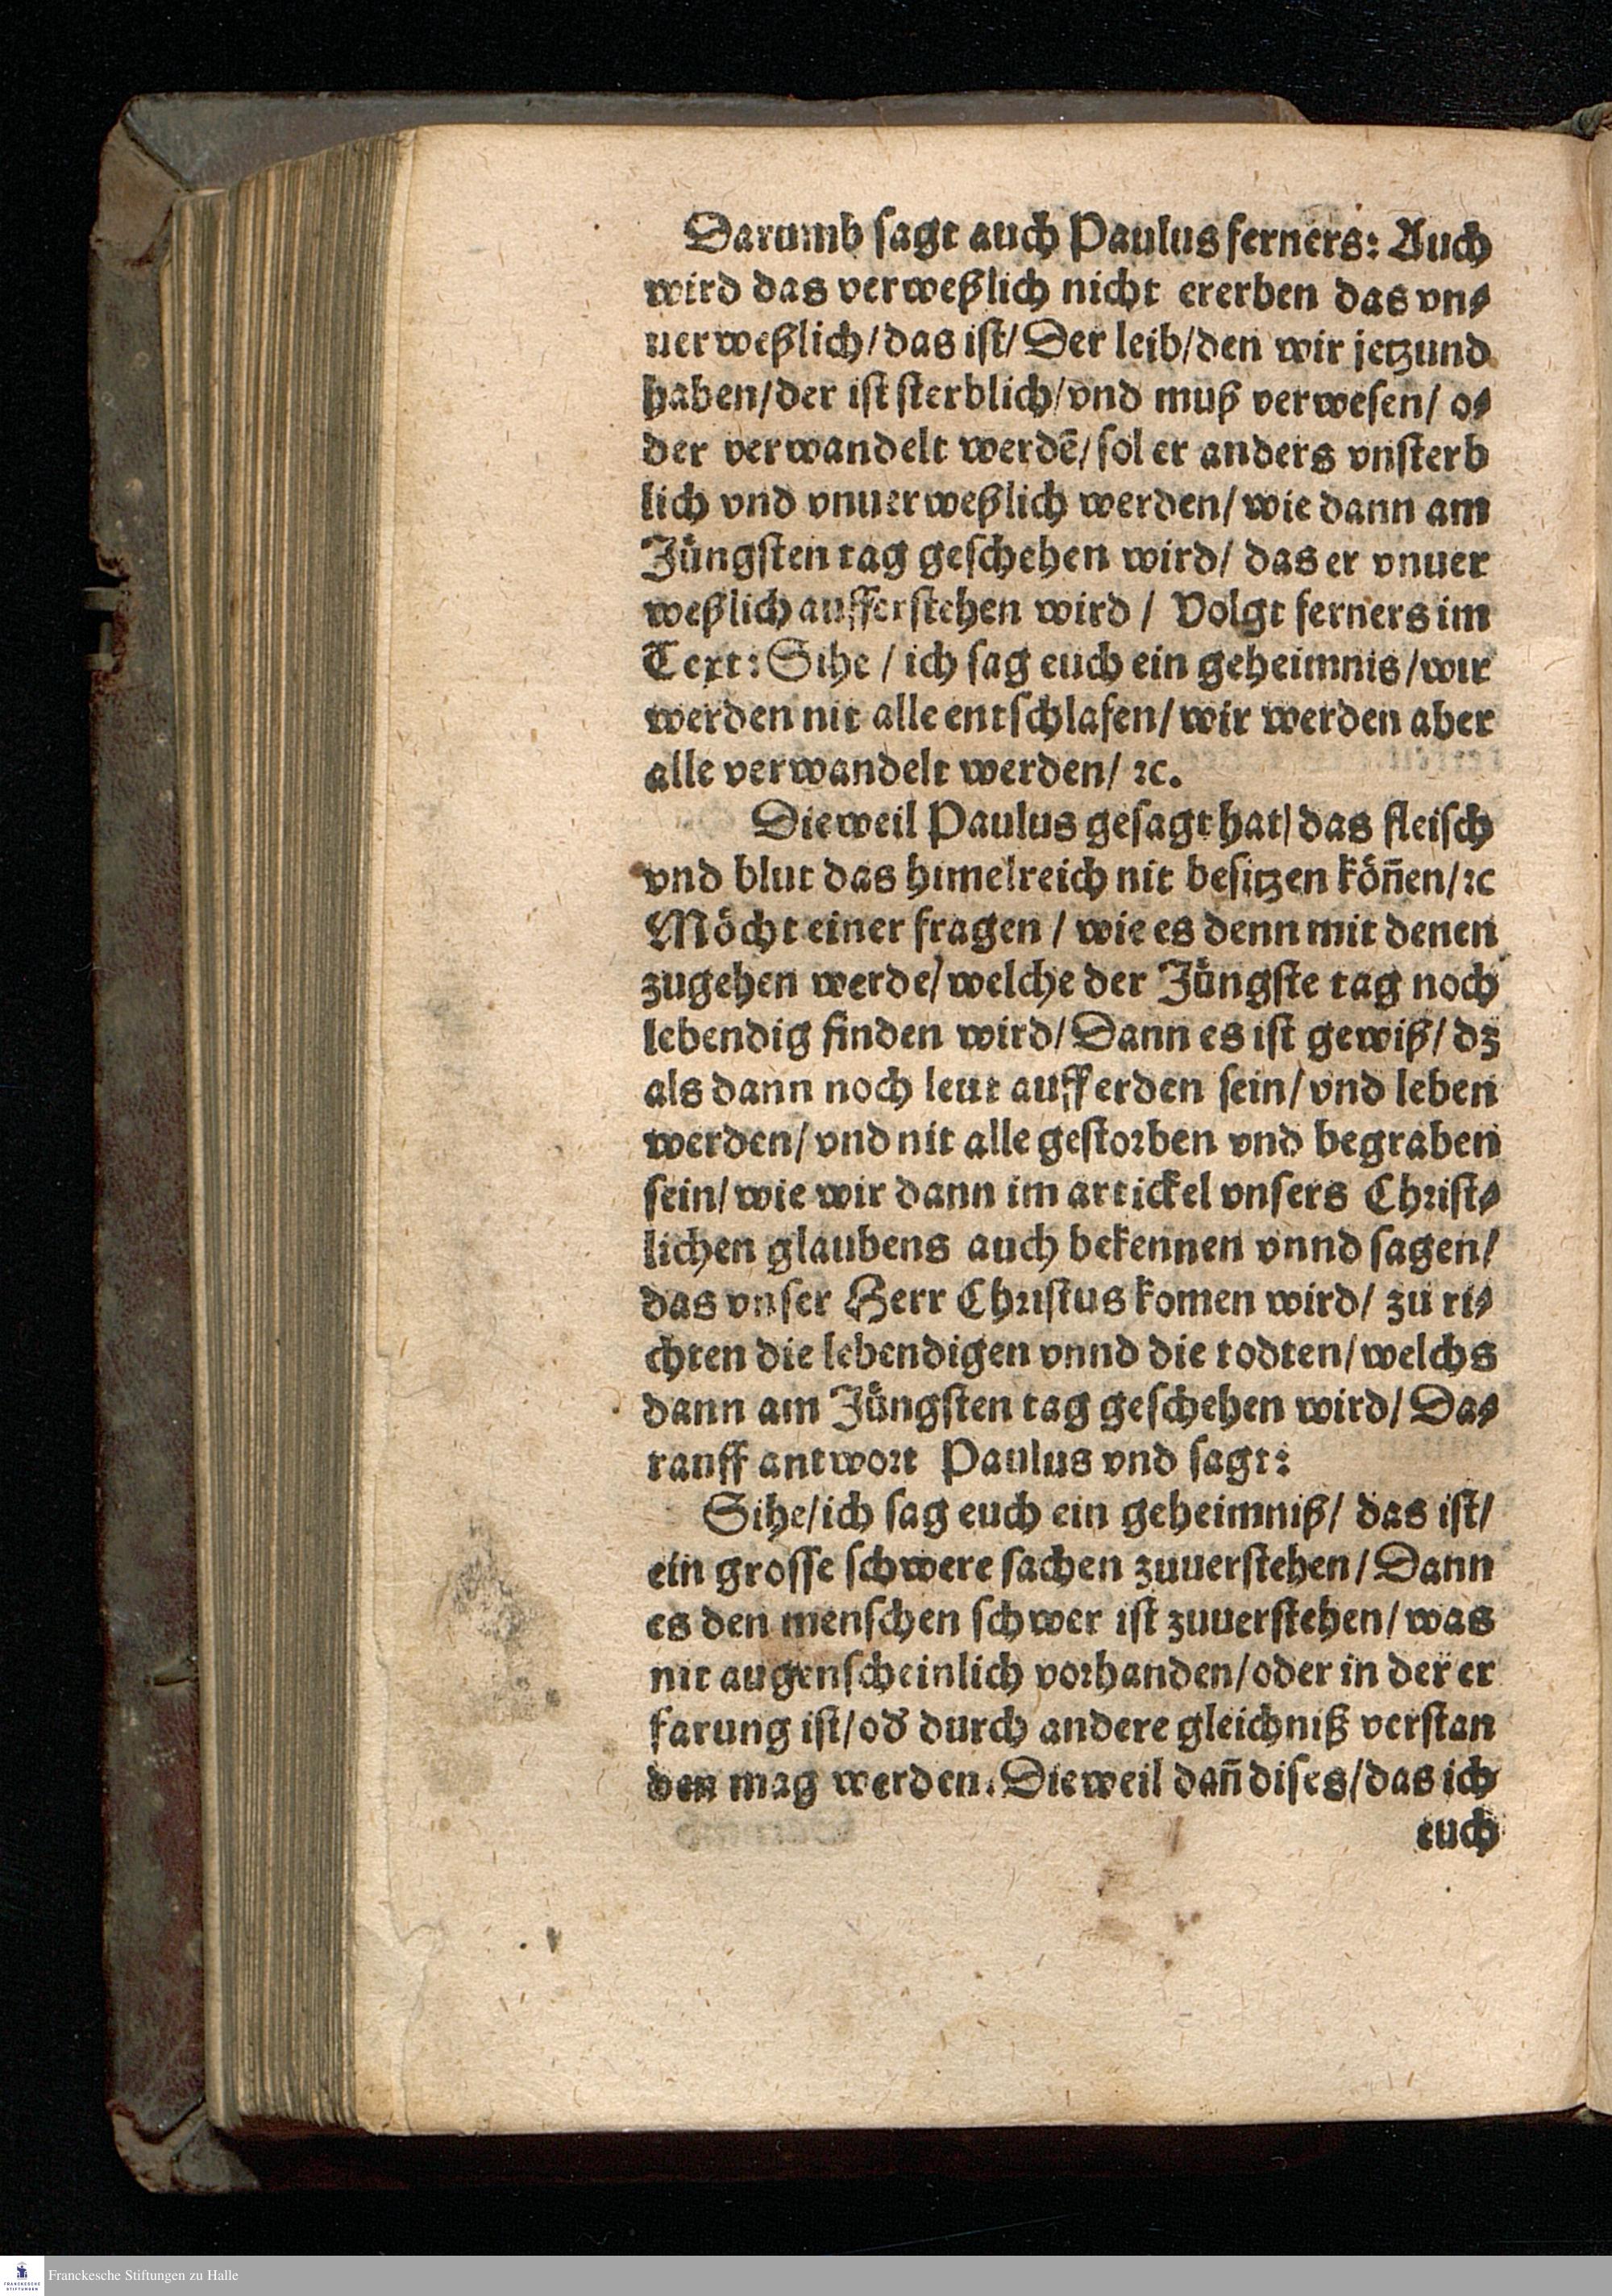 Darumb ſagt auch Paulus ferners: Auch
wird das verweßlich nicht ererben das vn⸗
uerweßlich/das iſt/ Der leib/den wir jetzund
haben/der iſt ſterblich/vnd muß verweſen/ o⸗
der verwandelt werdē/ſol er anders vnſterb
lich vnd vnuerweßlich werden/wie dann am
Jüngſten tag geſchehen wird/ das er vnuer
weßlich aufferſtehen wird / Volgt ferners im
Text: Sihe / ich ſag euch ein geheimnis/wir
werden nit alle entſchlafen/wir werden aber
alle verwandelt werden/ ꝛc.
Dieweil Paulus geſagt hat/das fleiſch
vnd blut das himelreich nit beſitzen köñen/ꝛc
Möcht einer fragen / wie es denn mit denen
zugehen werde/welche der Jüngſte tag noch
lebendig finden wird/ Dann es iſt gewiß/ dz
als dann noch leut auff erden ſein/vnd leben
werden/vnd nit alle geſtoꝛben vnd begraben
ſein/wie wir dann im artickel vnſers Chꝛiſt⸗
lichen glaubens auch bekennen vnnd ſagen/
das vnſer Herr Chꝛiſtus komen wird/ zu ri⸗
chten die lebendigen vnnd die todten/welchs
dann am Jüngſten tag geſchehen wird/ Da⸗
rauff antwoꝛt Paulus vnd ſagt:
Sihe/ich ſag euch ein geheimniß/ das iſt/
ein groſſe ſchwere ſachen zuuerſtehen/Dann
es den menſchen ſchwer iſt zuuerſtehen/was
nit augenſcheinlich voꝛhanden/oder in der er
farung iſt/od̕ durch andere gleichniß verſtan
den mag werden. Dieweil dañ diſes/das ich
euch
Franckesche Stiftungen zu Halle